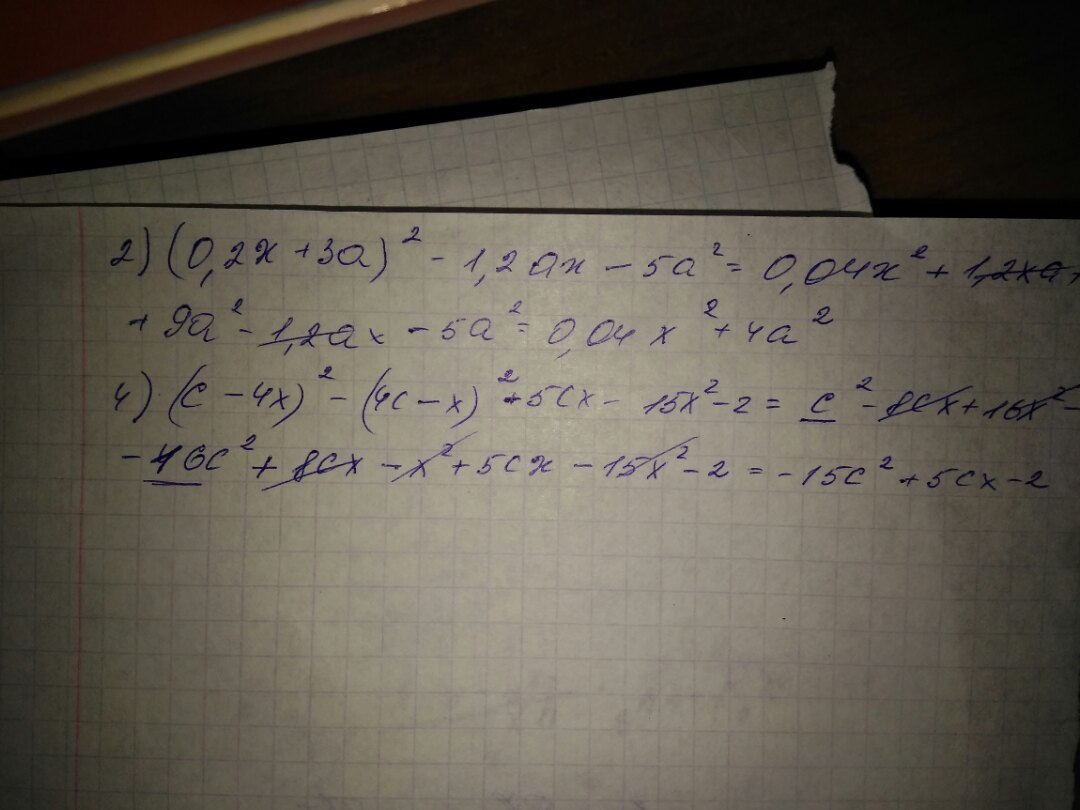 2) (0,2x + 3a)² - 1,2ax - 5a² = 0,04x² + 1,2xa +
+ 9a² - 1,2ax - 5a² = 0,04x² + 4a²
4) (c - 4x)² - (4c - x)² + 5cx - 15x² - 2 = c² - 8cx + 16x² -
- 16c² + 8cx - x² + 5cx - 15x² - 2 = -15c² + 5cx - 2